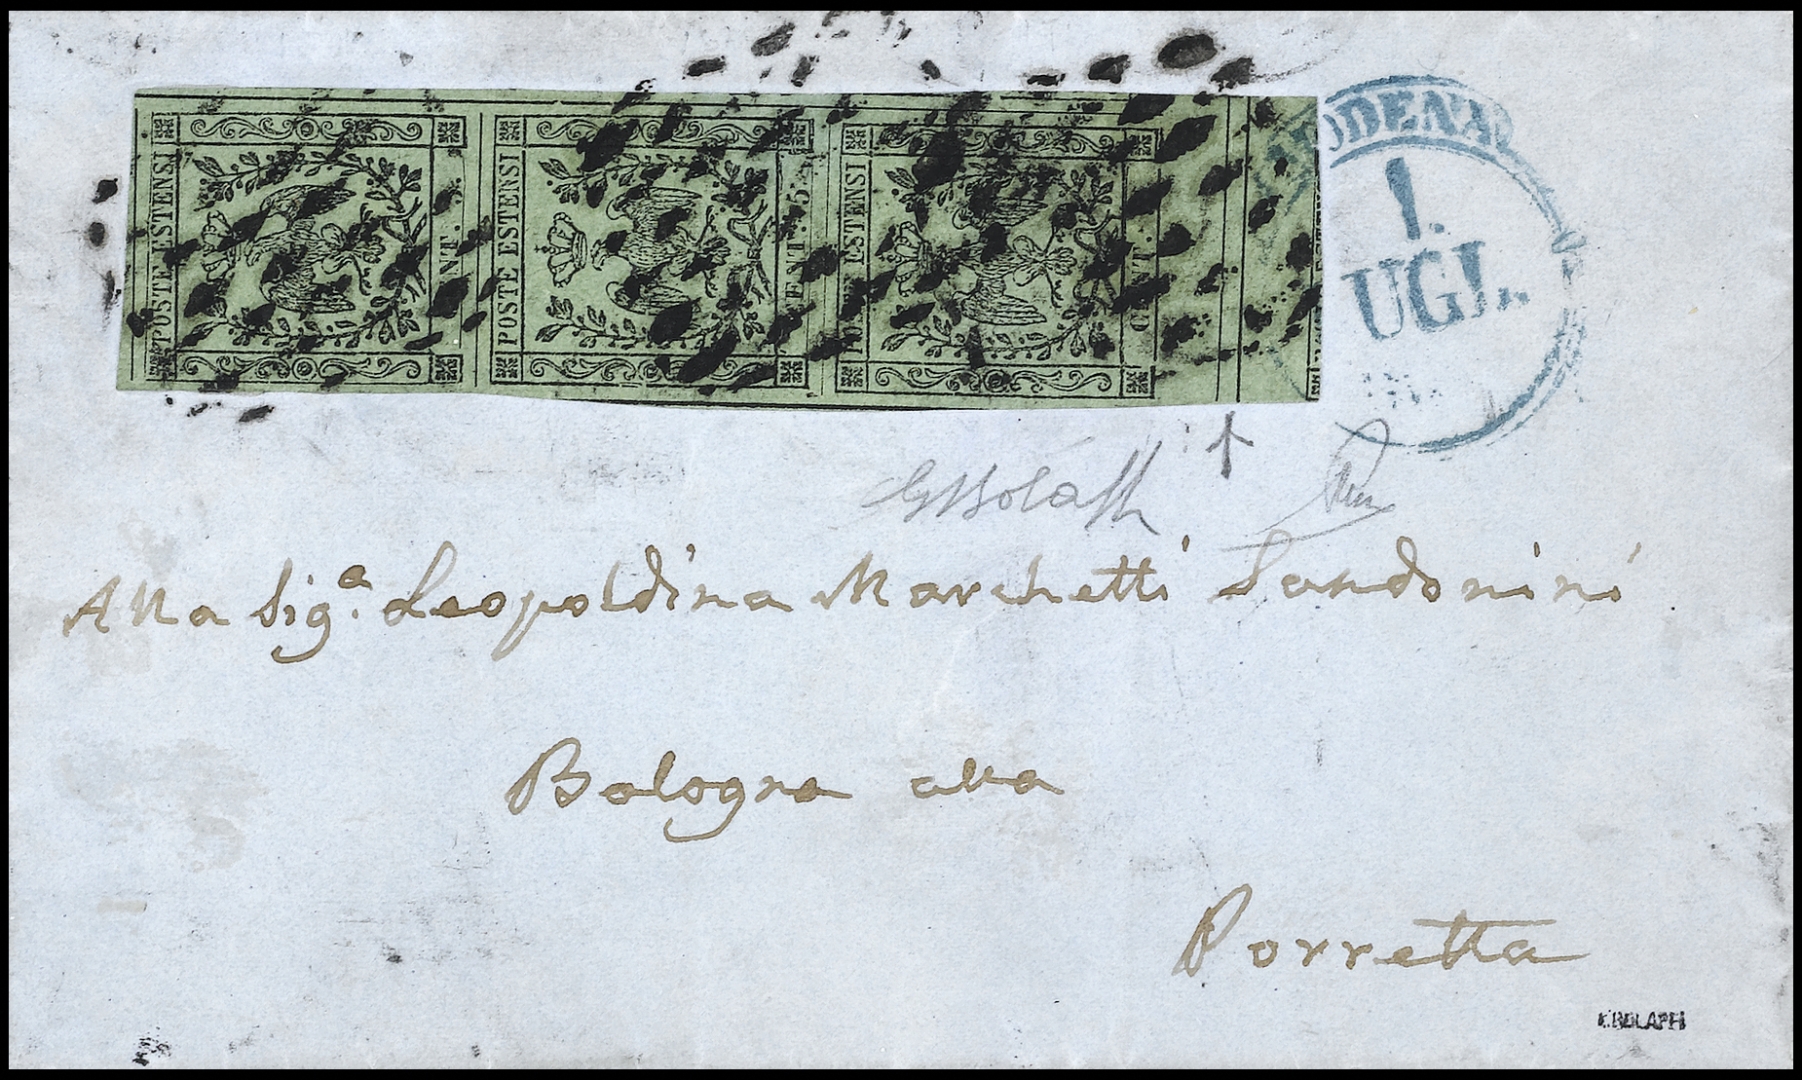 POSTE ESTENSI CENT. 5
POSTE ESTENSI CENT. 5
POSTE ESTENSI CENT.
MODENA
1.
UGL.
Alla Sig.a Leopoldina Marchetti Sandonini
Bologna alla
Porretta